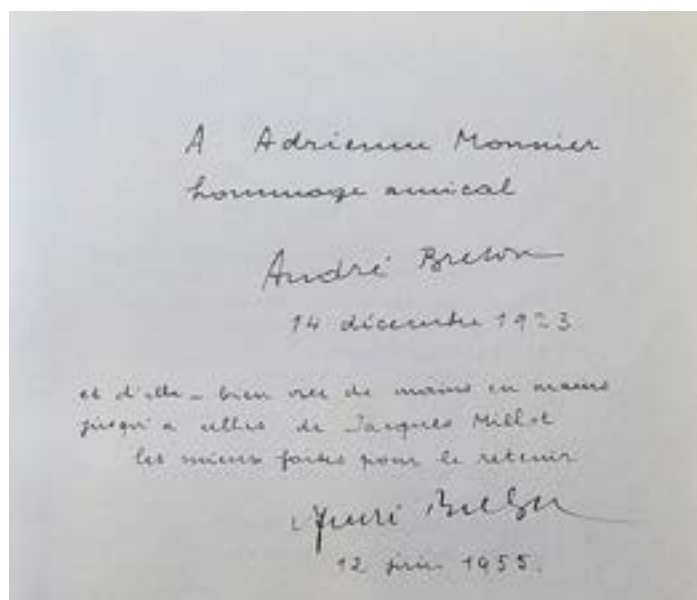 A Adrienne Monnier
hommage amical
André Breton
14 décembre 1923
et d'elle – bien de mains en mains
jusqu'à celles de Jacques Millot
les mieux faites pour le retenir
André Breton
12 juin 1955.